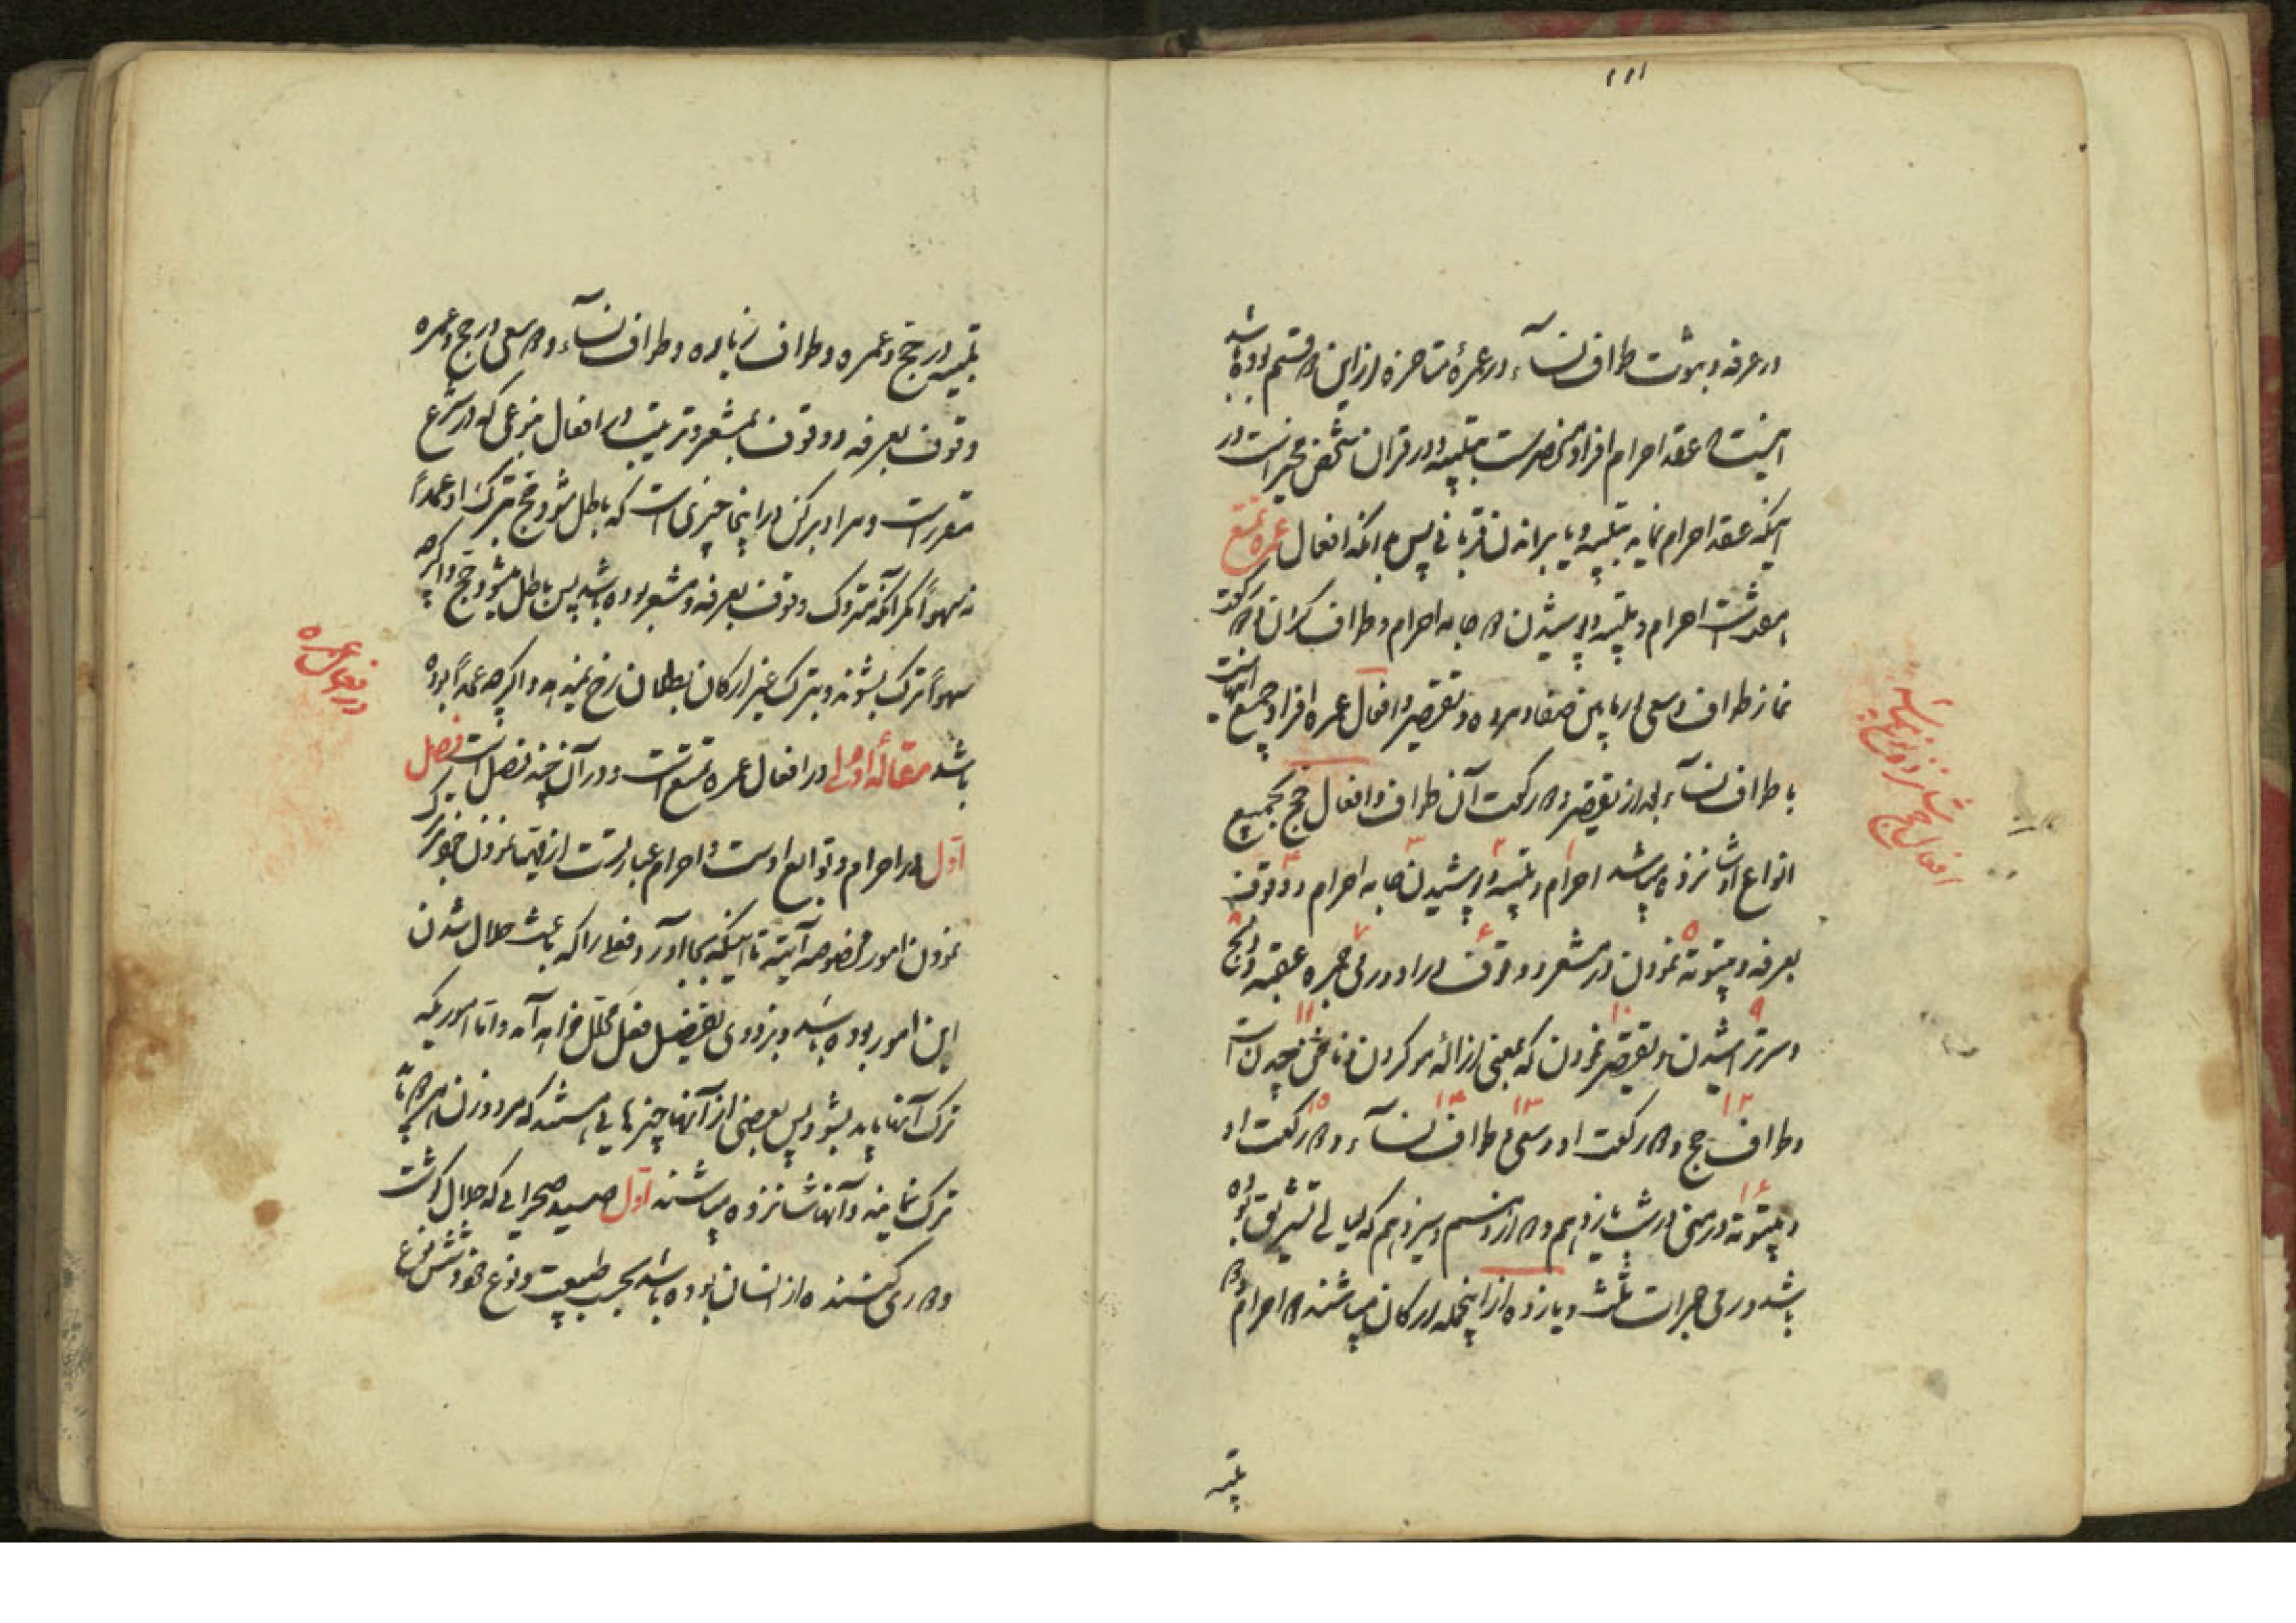 ۱۱۱
در عرفه و بثبوت طواف نسآء در عمرهٔ متاخره ازین دو قسم بوده باشد
اینست که عقد احرام افراد منحصرست بتلبیه و در قران شخص مخیر است در
اینکه عقد احرام نماید بتلبیه و یا براندن قربانی پس بدانکه افعال عمره تمتع
احرام و تلبیه و پوشیدن دو جامه احرام و طواف و دو رکعت
نماز طواف و سعی در مابین صفا و مروه و تقصیر و افعال عمره افراد جمیع اینهاست
با طواف نسآء بعد از تقصیر و دو رکعت آن طواف و افعال حج بجمیع
انواع او شانزده میباشد احرام و تلبیه و پوشیدن جامه احرام و وقوف
بعرفه و بیتوته نمودن در مشعر و وقوف در او و رمی جمره عقبه و ذبح
و سر تراشیدن و تقصیر نمودن که بمعنی ازالهٔ مو کردن و ناخن چیدن است
و طواف حج و دو رکعت او و سعی و طواف نسآء و دو رکعت او
و بیتوته در منی در شب یازدهم و دوازدهم و سیزدهم که لیالی تشریق بوده
باشد و رمی جمرات ثلث و یازده از اینجمله ارکان میباشند دو احرام و دو
تلبیه
افعال حج شانزده نوع میباشد
تلبیه در حج و عمره و طواف زیاره و طواف نسآء و دو سعی در حج و عمره
و وقوف بعرفه و وقوف بمشعر و ترتیب در افعال بنوعی که در شرع
مقرر است و مراد برکن در اینجا چیزی است که باطل شود حج بترک او عمداً
نه سهواً مگر آنکه متروک وقوف بعرفه و مشعر بوده باشد پس باطل میشود حج و اگرچه
سهواً ترک بشوند و بترک غیر ارکان بطلان رخ نمیدهد و اگرچه عمداً بوده
باشد مقالهٔ اولی در افعال عمره تمتع است و در آن پنج فصل است فصل
اول در احرام و توابع اوست و احرام عبارتست از مهیا نمودن خود بترک
نمودن امور مخصوصه آتیه تا اینکه بجا آورد فعلی را که باعث حلال شدن
این امور بوده باشد و بزودی تفصیل فعل محلل خواهد آمد و اما اموریکه
ترک آنها باید بشود پس بعضی از آنها چیزهایی هستند که مرد و زن هر دو باید
ترک نمایند و آنها شانزده میباشند اول صید صحرایی که حلال گوشت
و دوری کننده از انسان بوده باشد بحسب طبیعت و نوع خود و شش نوع
در افعال عمره